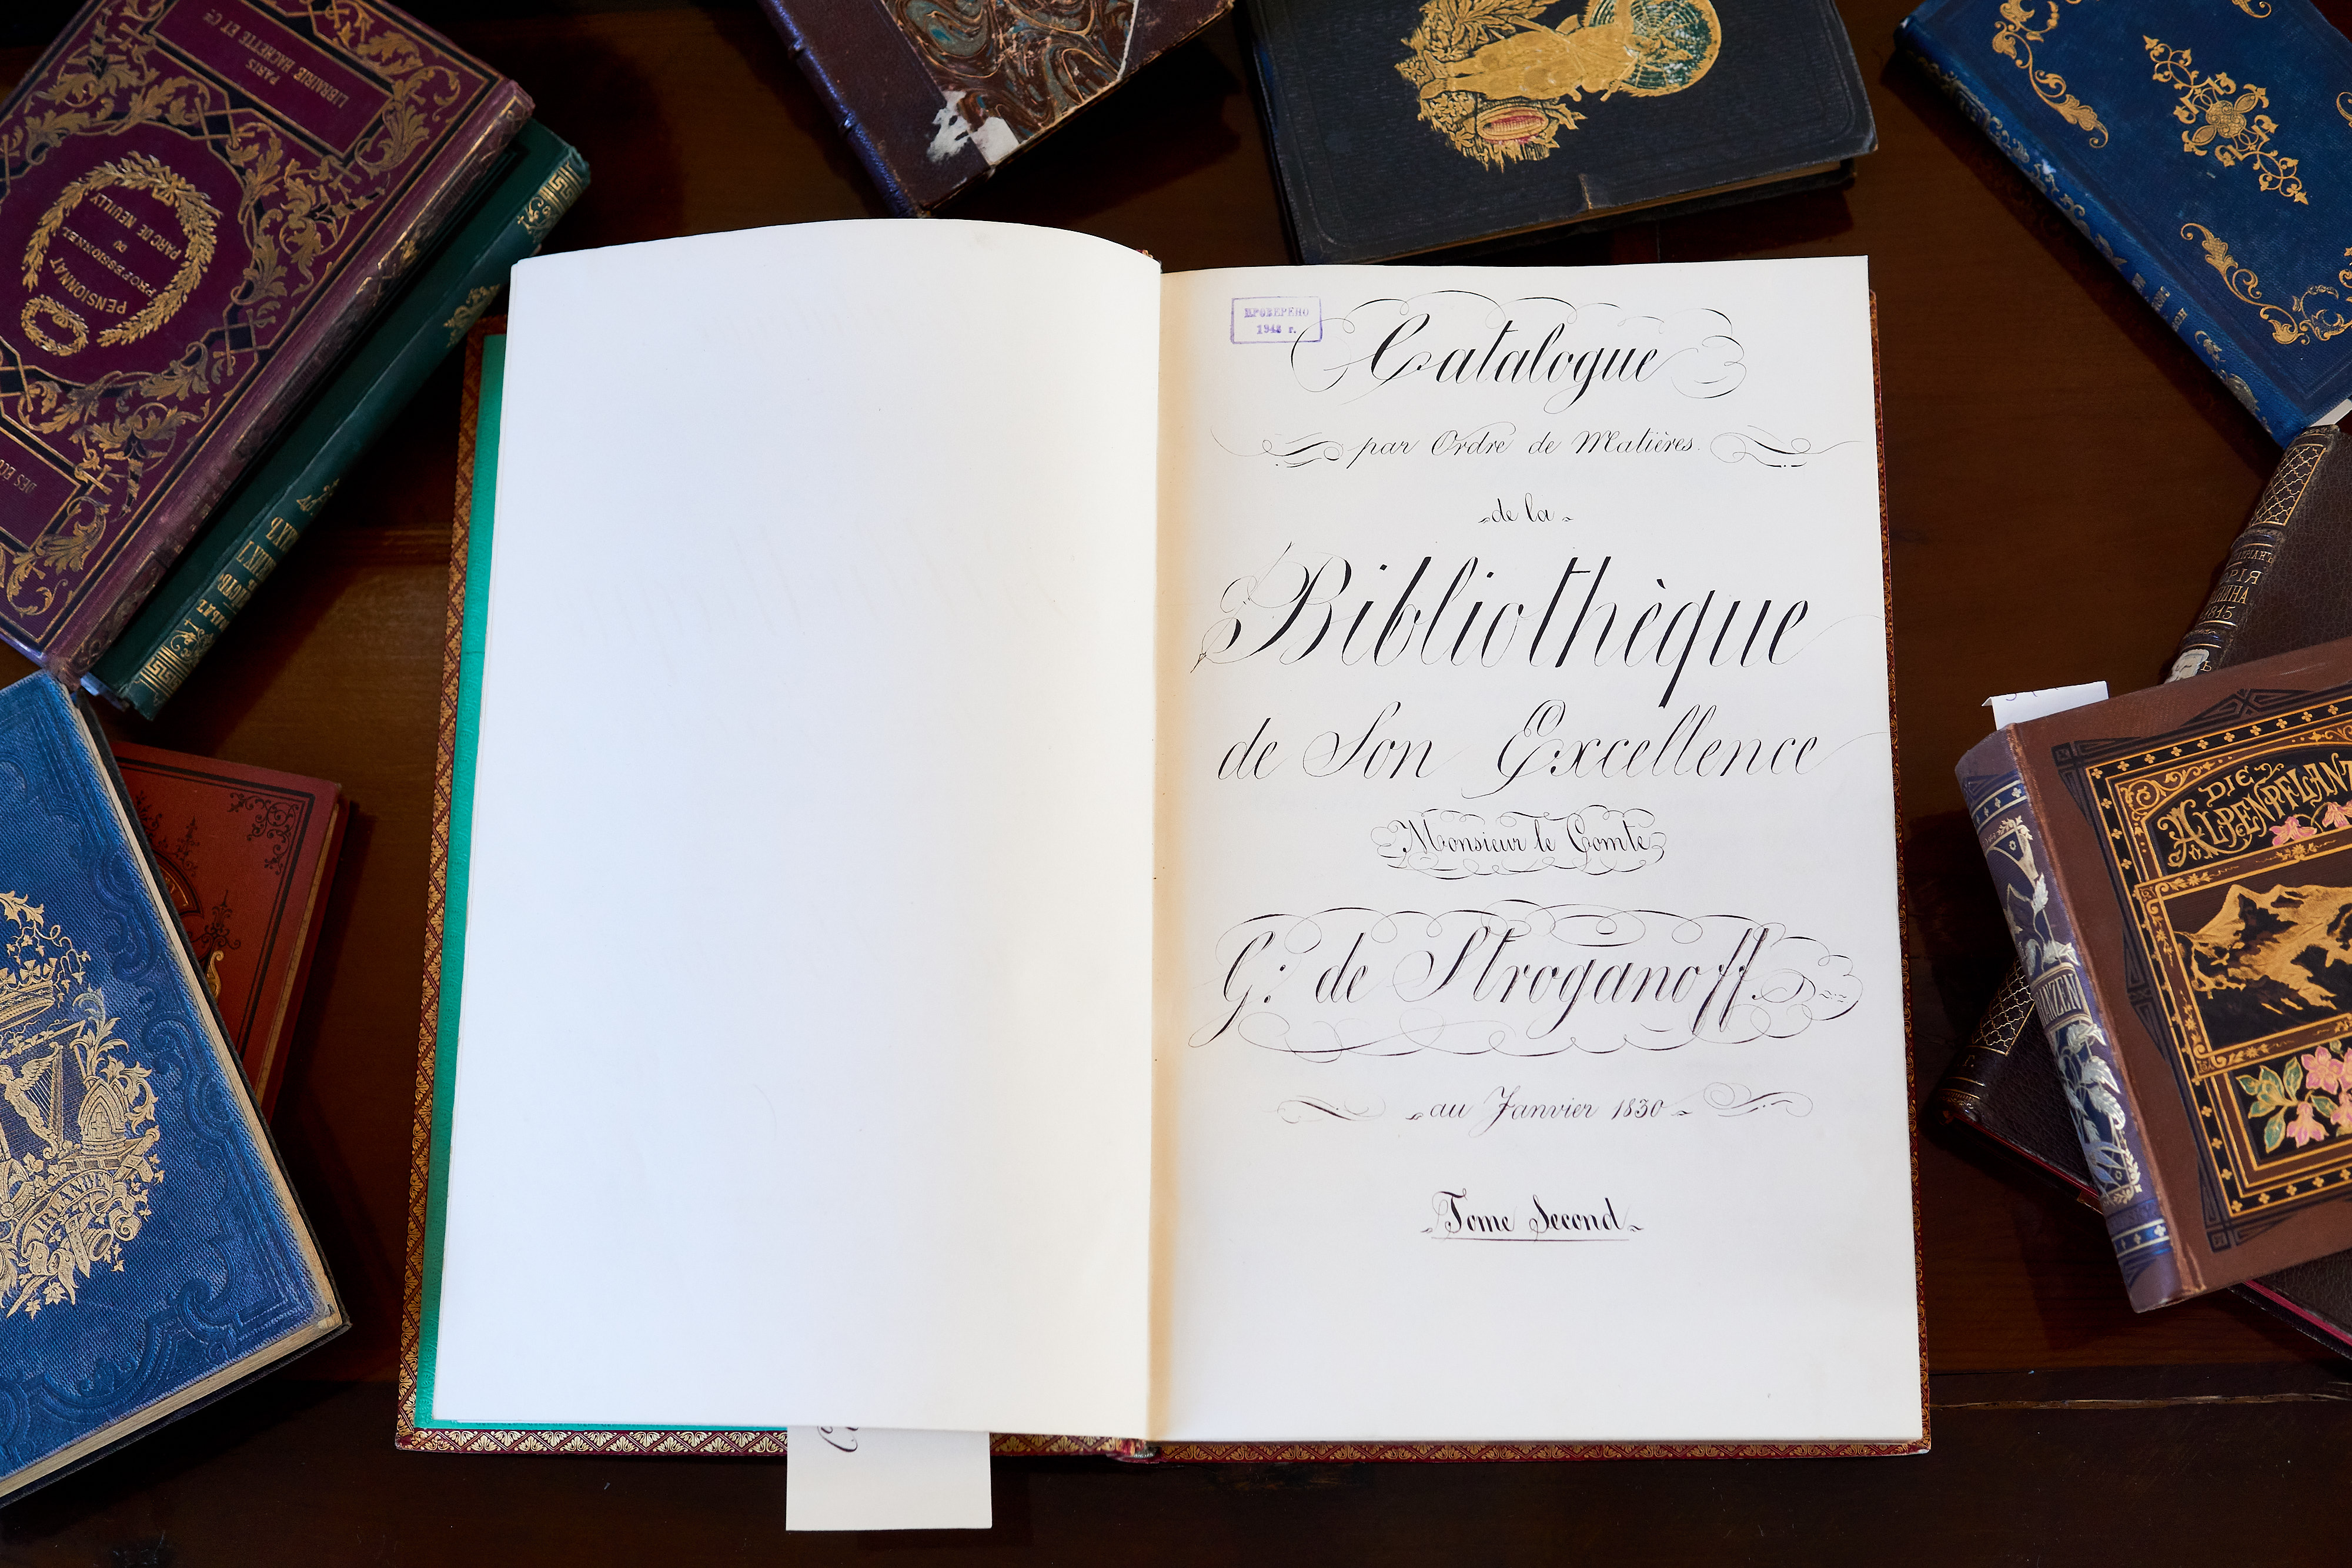 ПРОВЕРЕНО
1948 г.
Catalogue
par Ordre de Matières.
de la
Bibliothèque
de Son Excellence
Monsieur le Comte
G: de Stroganoff.
au Janvier 1830
Tome Second
PARIS
LIBRAIRIE HACHETTE ET Cie
PENSIONNAT
PROFESSIONNEL
DU
PARC DE NEUILLY
DES
IRLANDE
1815
DIE
ALPENPFLANZ
ANZEN